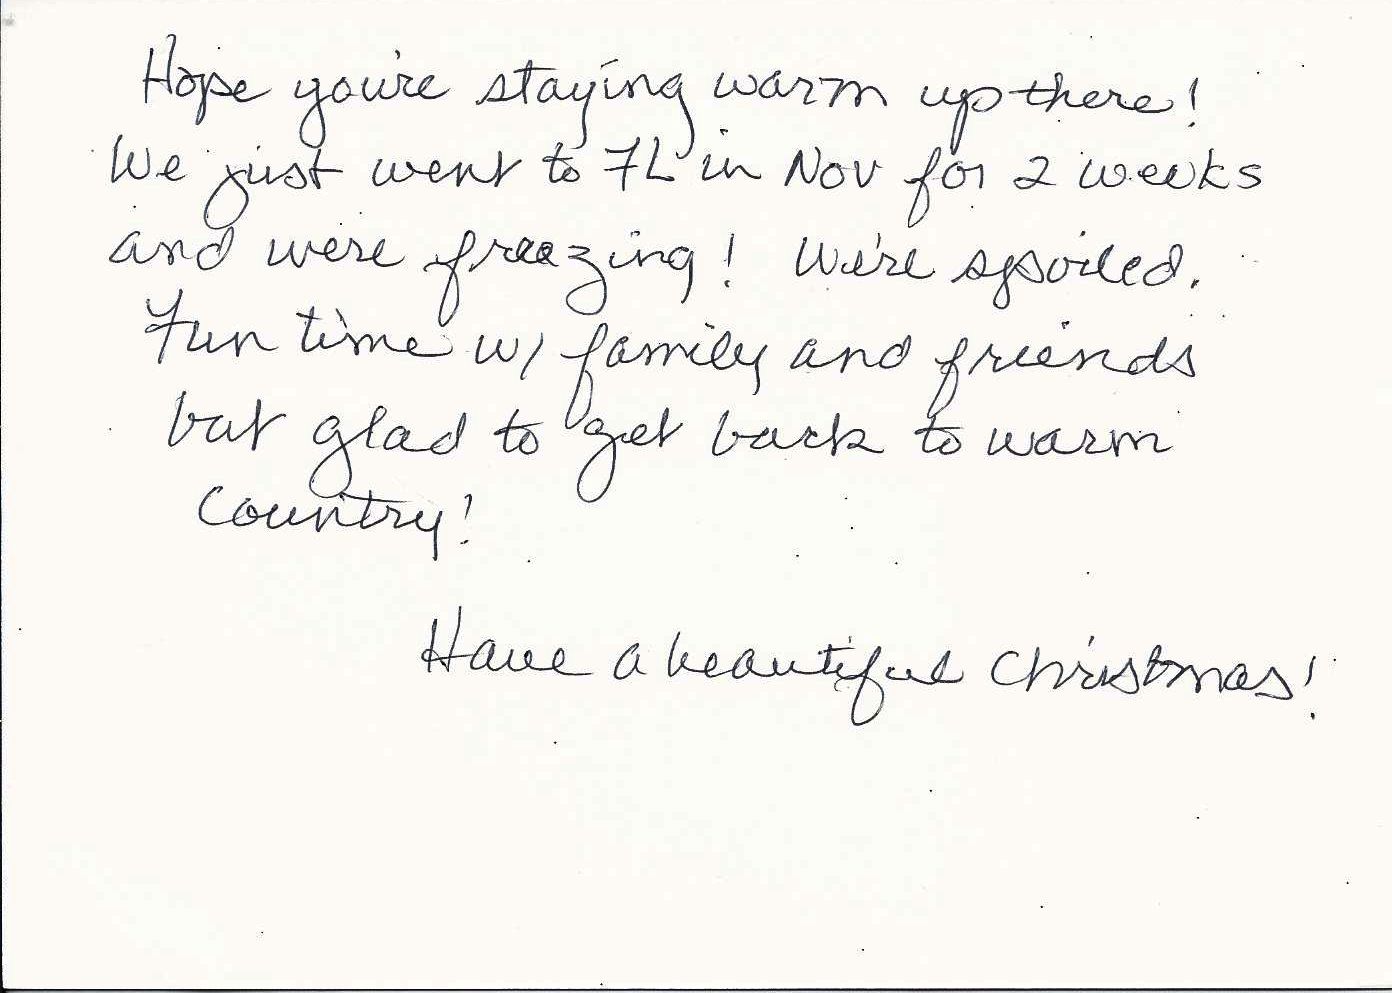 Hope you're staying warm up there!
We just went to FL in Nov for 2 weeks
and were freezing! We're spoiled.
Fun time w/ family and friends
but glad to get back to warm
country!
Have a beautiful Christmas!